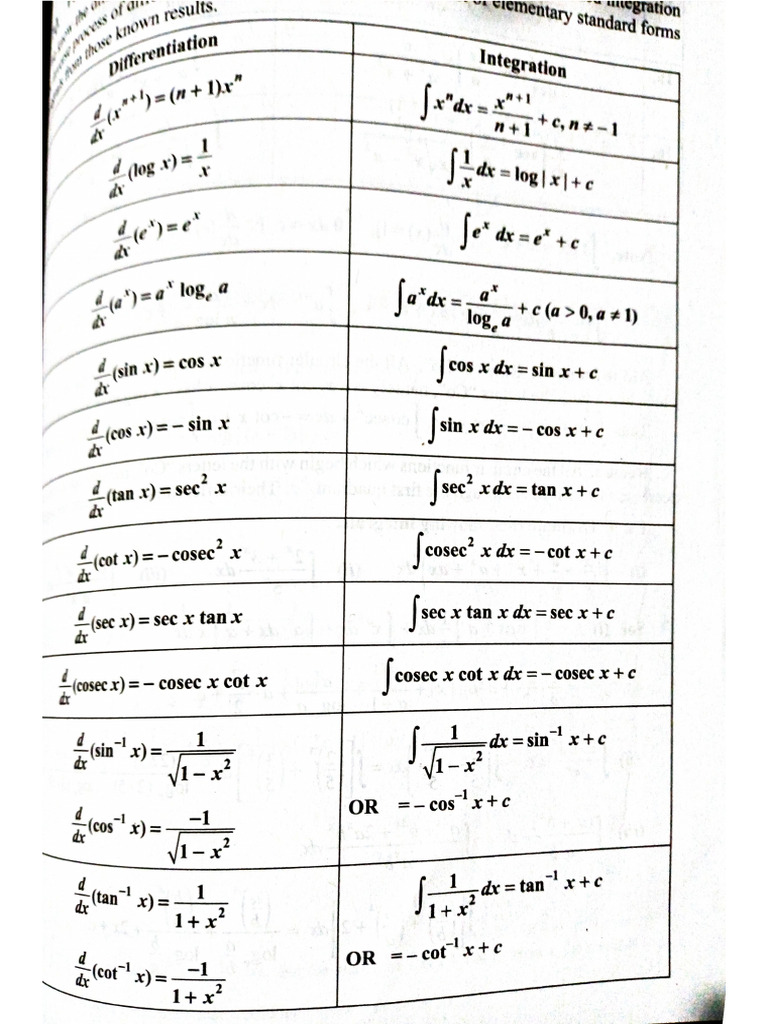 integration
elementary standard forms
those known results.
Differentiation | Integration
d/dx (x^{n+1}) = (n + 1)x^n | ∫ x^n dx = x^{n+1}/(n + 1) + c, n ≠ −1
d/dx (log x) = 1/x | ∫ 1/x dx = log | x | + c
d/dx (e^x) = e^x | ∫ e^x dx = e^x + c
d/dx (a^x) = a^x log_e a | ∫ a^x dx = a^x/log_e a + c (a > 0, a ≠ 1)
d/dx (sin x) = cos x | ∫ cos x dx = sin x + c
d/dx (cos x) = − sin x | ∫ sin x dx = − cos x + c
d/dx (tan x) = sec² x | ∫ sec² x dx = tan x + c
d/dx (cot x) = − cosec² x | ∫ cosec² x dx = − cot x + c
d/dx (sec x) = sec x tan x | ∫ sec x tan x dx = sec x + c
d/dx (cosec x) = − cosec x cot x | ∫ cosec x cot x dx = − cosec x + c
d/dx (sin⁻¹ x) = 1/√(1 − x²) | ∫ 1/√(1 − x²) dx = sin⁻¹ x + c
d/dx (cos⁻¹ x) = −1/√(1 − x²) | OR = − cos⁻¹ x + c
d/dx (tan⁻¹ x) = 1/(1 + x²) | ∫ 1/(1 + x²) dx = tan⁻¹ x + c
d/dx (cot⁻¹ x) = −1/(1 + x²) | OR = − cot⁻¹ x + c